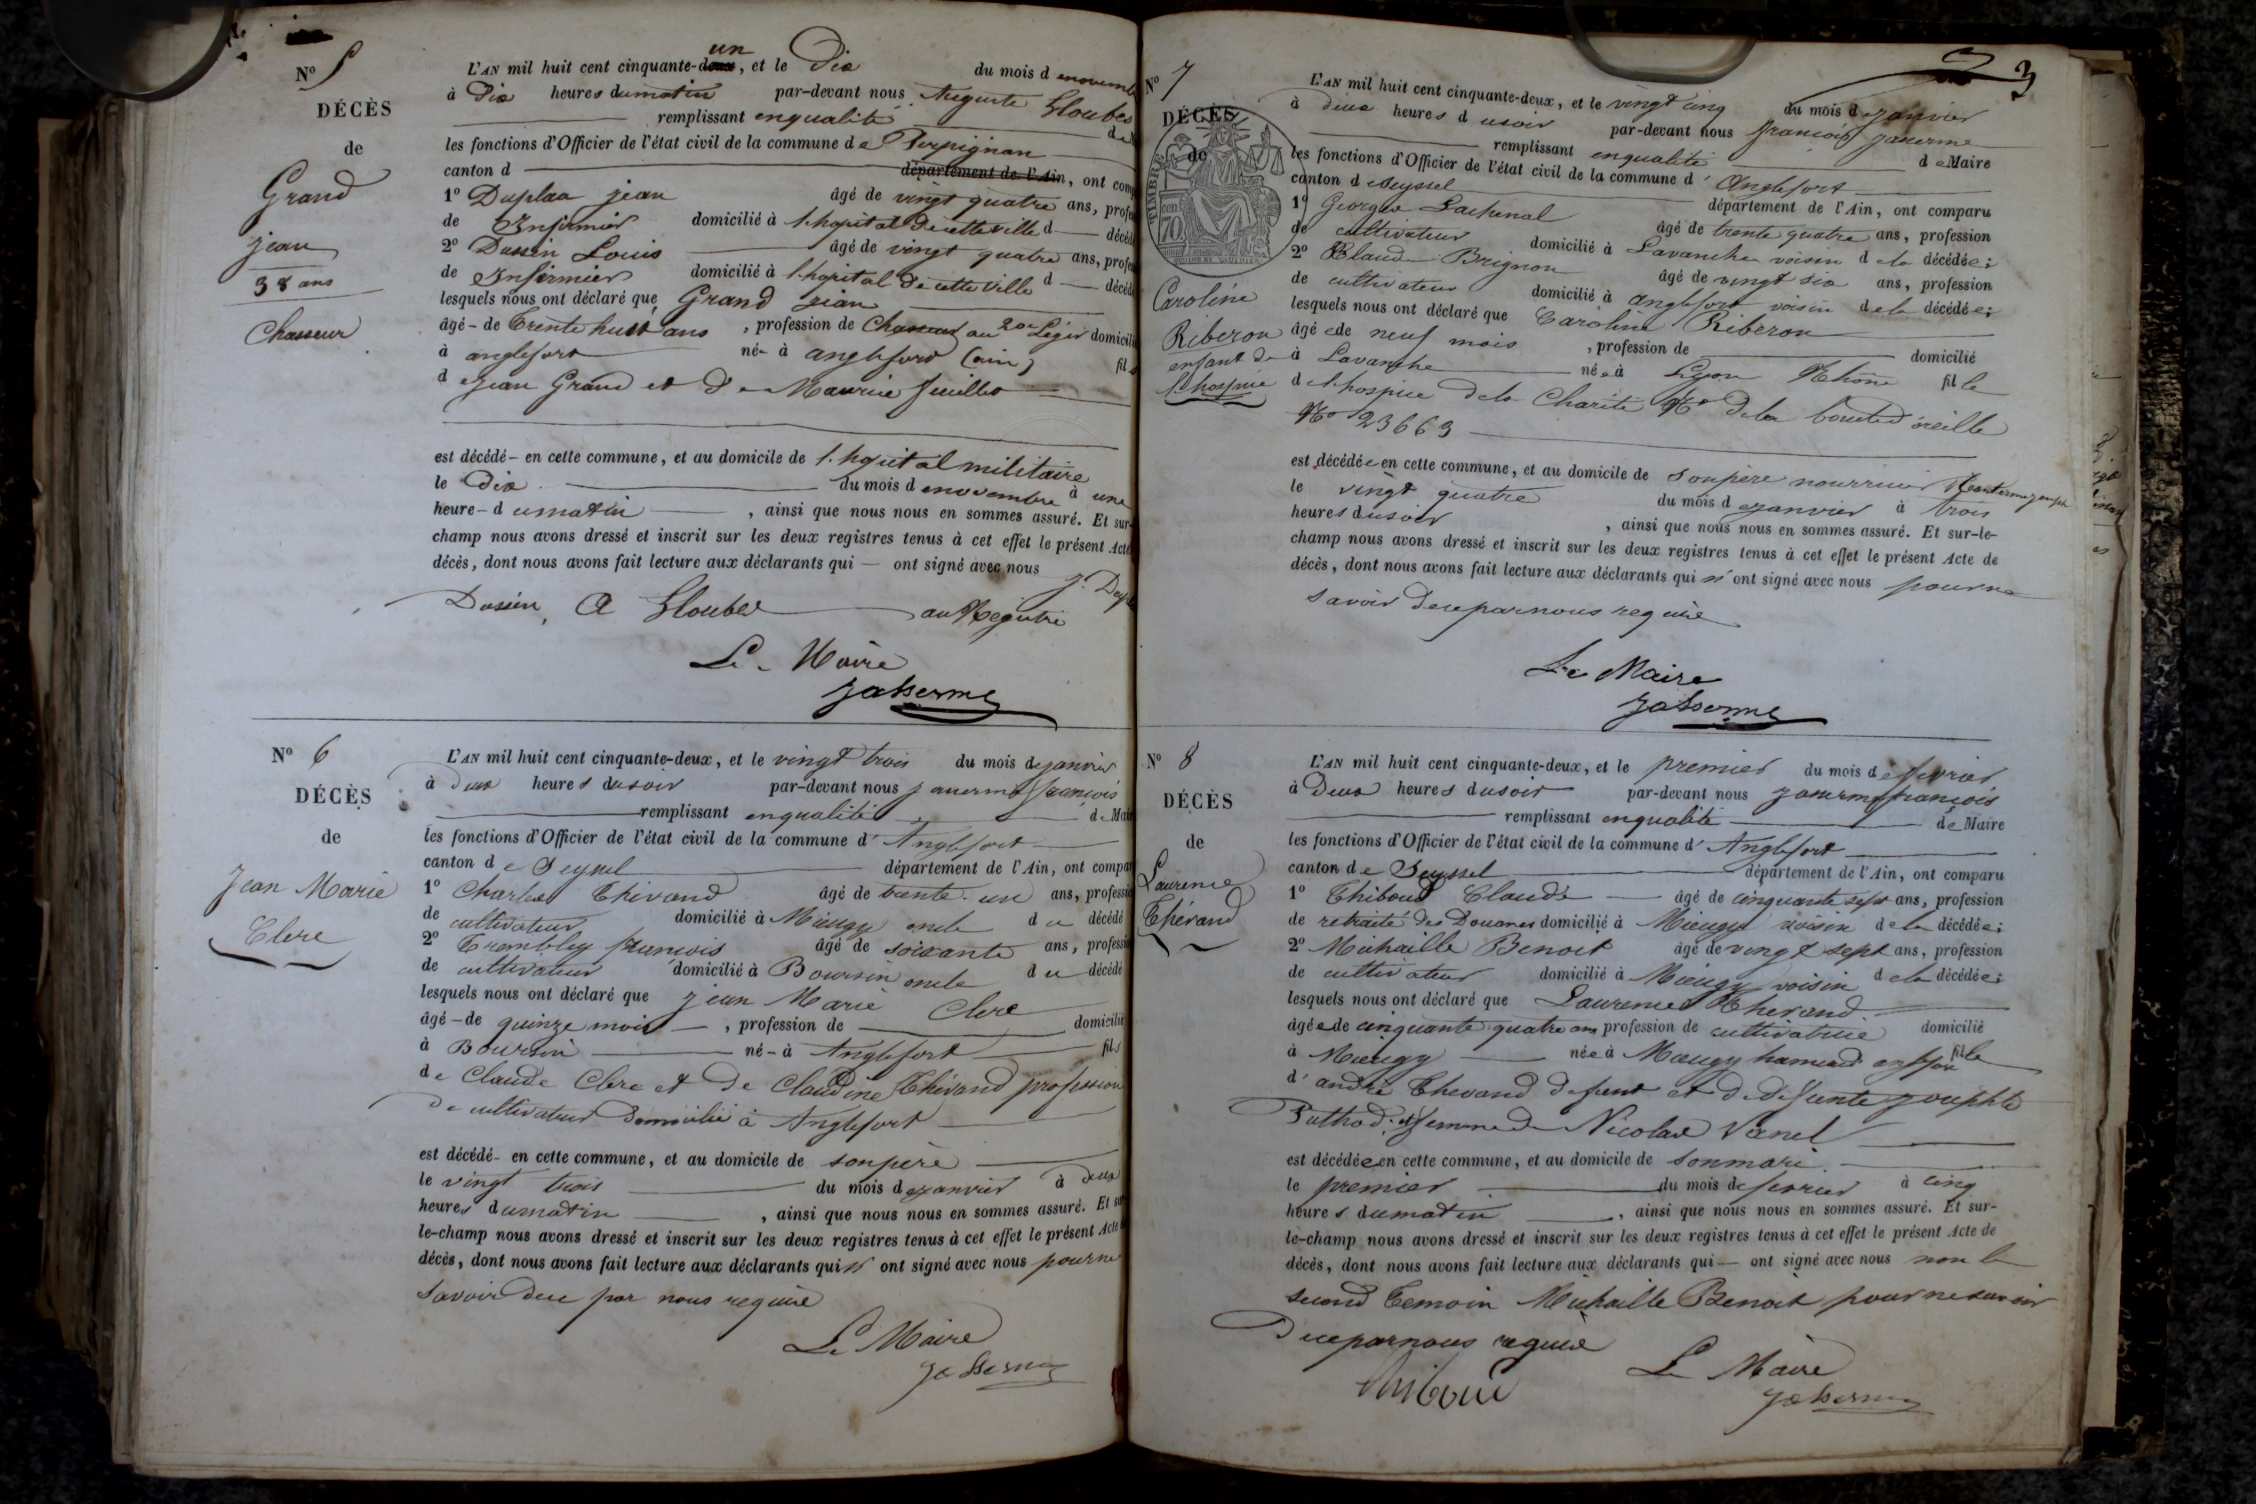 N° 5
DÉCÈS
de
Grand
jean
38 ans
Chasseur
L'AN mil huit cent cinquante-deux un, et le Dix du mois d enovemb
à Dix heures dumatin par-devant nous Auguste Lloubes
remplissant enqualité de
les fonctions d'Officier de l'état civil de la commune de Perpignan
canton d département de l'Ain, ont comp
1° Duplaa jean âgé de vingt quatre ans, profes
de Infirmier domicilié à l.hopital de cette ville d décéd
2° Dassin Louis âgé de vingt quatre ans, profes
de Infirmier domicilié à l.hopital de cette ville d décéd
lesquels nous ont déclaré que Grand jean
âgé - de Trente huit ans , profession de Chasseur au 20e Léger domicili
à anglefort né- à anglefort (ain) fils
d ejean Grand et de Maurice feuillet
est décédé - en cette commune, et au domicile de l.hopital militaire
le Dix du mois d enovembre à une
heure - d umatin , ainsi que nous nous en sommes assuré. Et sur-
champ nous avons dressé et inscrit sur les deux registres tenus à cet effet le présent Acte
décès, dont nous avons fait lecture aux déclarants qui — ont signé avec nous j. Dup
Dassin, A Lloubes au Registre
Le Maire
Janerme
N° 6
DÉCÈS
de
Jean Marie
Clerc
L'AN mil huit cent cinquante-deux, et le vingt trois du mois de janvier
à deux heures dusoir par-devant nous janerme françois
remplissant enqualité de Mair
les fonctions d'Officier de l'état civil de la commune d' Anglefort
canton de Seyssel département de l'Ain, ont compar
1° Charles Thévand âgé de trente un ans, professi
de cultivateur domicilié à Mieugy oncle du décédé
2° Trembley françois âgé de soixante ans, professi
de cultivateur domicilié à Boursin oncle du décédé
lesquels nous ont déclaré que jean Marie Clerc
âgé - de quinze mois , profession de domicilié
à Boursin né - à Anglefort fils
de Claude Clerc et de Claudine Thévand profession
de cultivateur domicilié à Anglefort
est décédé - en cette commune, et au domicile de sonpère
le vingt trois du mois d ejanvier à deux
heures dumatin , ainsi que nous nous en sommes assuré. Et su
le-champ nous avons dressé et inscrit sur les deux registres tenus à cet effet le présent Acte
décès, dont nous avons fait lecture aux déclarants qui n' ont signé avec nous pourne
savoir dece par nous requis
Le Maire
Janerme
3
N° 7
DÉCÈS
de
TIMBRE
70
Caroline
Riberon
enfant de
l'hospice
L'AN mil huit cent cinquante-deux, et le vingt cinq du mois d ejanvier
à deux heures d usoir par-devant nous françois janerme
remplissant enqualité de Maire
les fonctions d'Officier de l'état civil de la commune d' Anglefort
canton d eseyssel département de l'Ain, ont comparu
1° Georges Lachenal âgé de trente quatre ans, profession
de cultivateur domicilié à Lavanche voisin d ela décédée;
2° Claude Brignon âgé de vingt six ans, profession
de cultivateur domicilié à anglefort voisin d ela décédée;
lesquels nous ont déclaré que Caroline Riberon
âgé ede neuf mois , profession de domicilié
à Lavanche née à Lyon Rhône fille
d el.hospice dela Charité N° dela boucle d'oreille
N° 23663
est décédée en cette commune, et au domicile de sonpère nourricier
le vingt quatre du mois d ejanvier à trois
heures dusoir , ainsi que nous nous en sommes assuré. Et sur-le-
champ nous avons dressé et inscrit sur les deux registres tenus à cet effet le présent Acte de
décès, dont nous avons fait lecture aux déclarants qui n' ont signé avec nous pourne
savoir deceparnous requis
Le Maire
Janerme
N° 8
DÉCÈS
de
Laurence
Thévand
L'AN mil huit cent cinquante-deux, et le premier du mois d efevrier
à Deux heures dusoir par-devant nous janerme françois
remplissant enqualité de Maire
les fonctions d'Officier de l'état civil de la commune d' Anglefort
canton de Seyssel département de l'Ain, ont comparu
1° Thiboud Claude âgé de cinquante sept ans, profession
de retraité des Douanes domicilié à Mieugy voisin d ela décédée;
2° Michaille Benoit âgé de vingt sept ans, profession
de cultivateur domicilié à Mieugy voisin d ela décédée;
lesquels nous ont déclaré que Laurence Thevand
âgé ede cinquante quatre ans profession de cultivatrice domicilié
à Mieugy née à Mieugy hameau fille
d' andré Thevand defunt et de défunte josephte
Pathod et femme de Nicolas Vanel
est décédée en cette commune, et au domicile de sonmari
le premier du mois de fevrier à cinq
heures dumatin , ainsi que nous nous en sommes assuré. Et sur-
le-champ nous avons dressé et inscrit sur les deux registres tenus à cet effet le présent Acte de
décès, dont nous avons fait lecture aux déclarants qui — ont signé avec nous non le
second temoin Michaille Benoit pour nesavoir
deceparnous requis
Thiboud Le Maire
Janerme